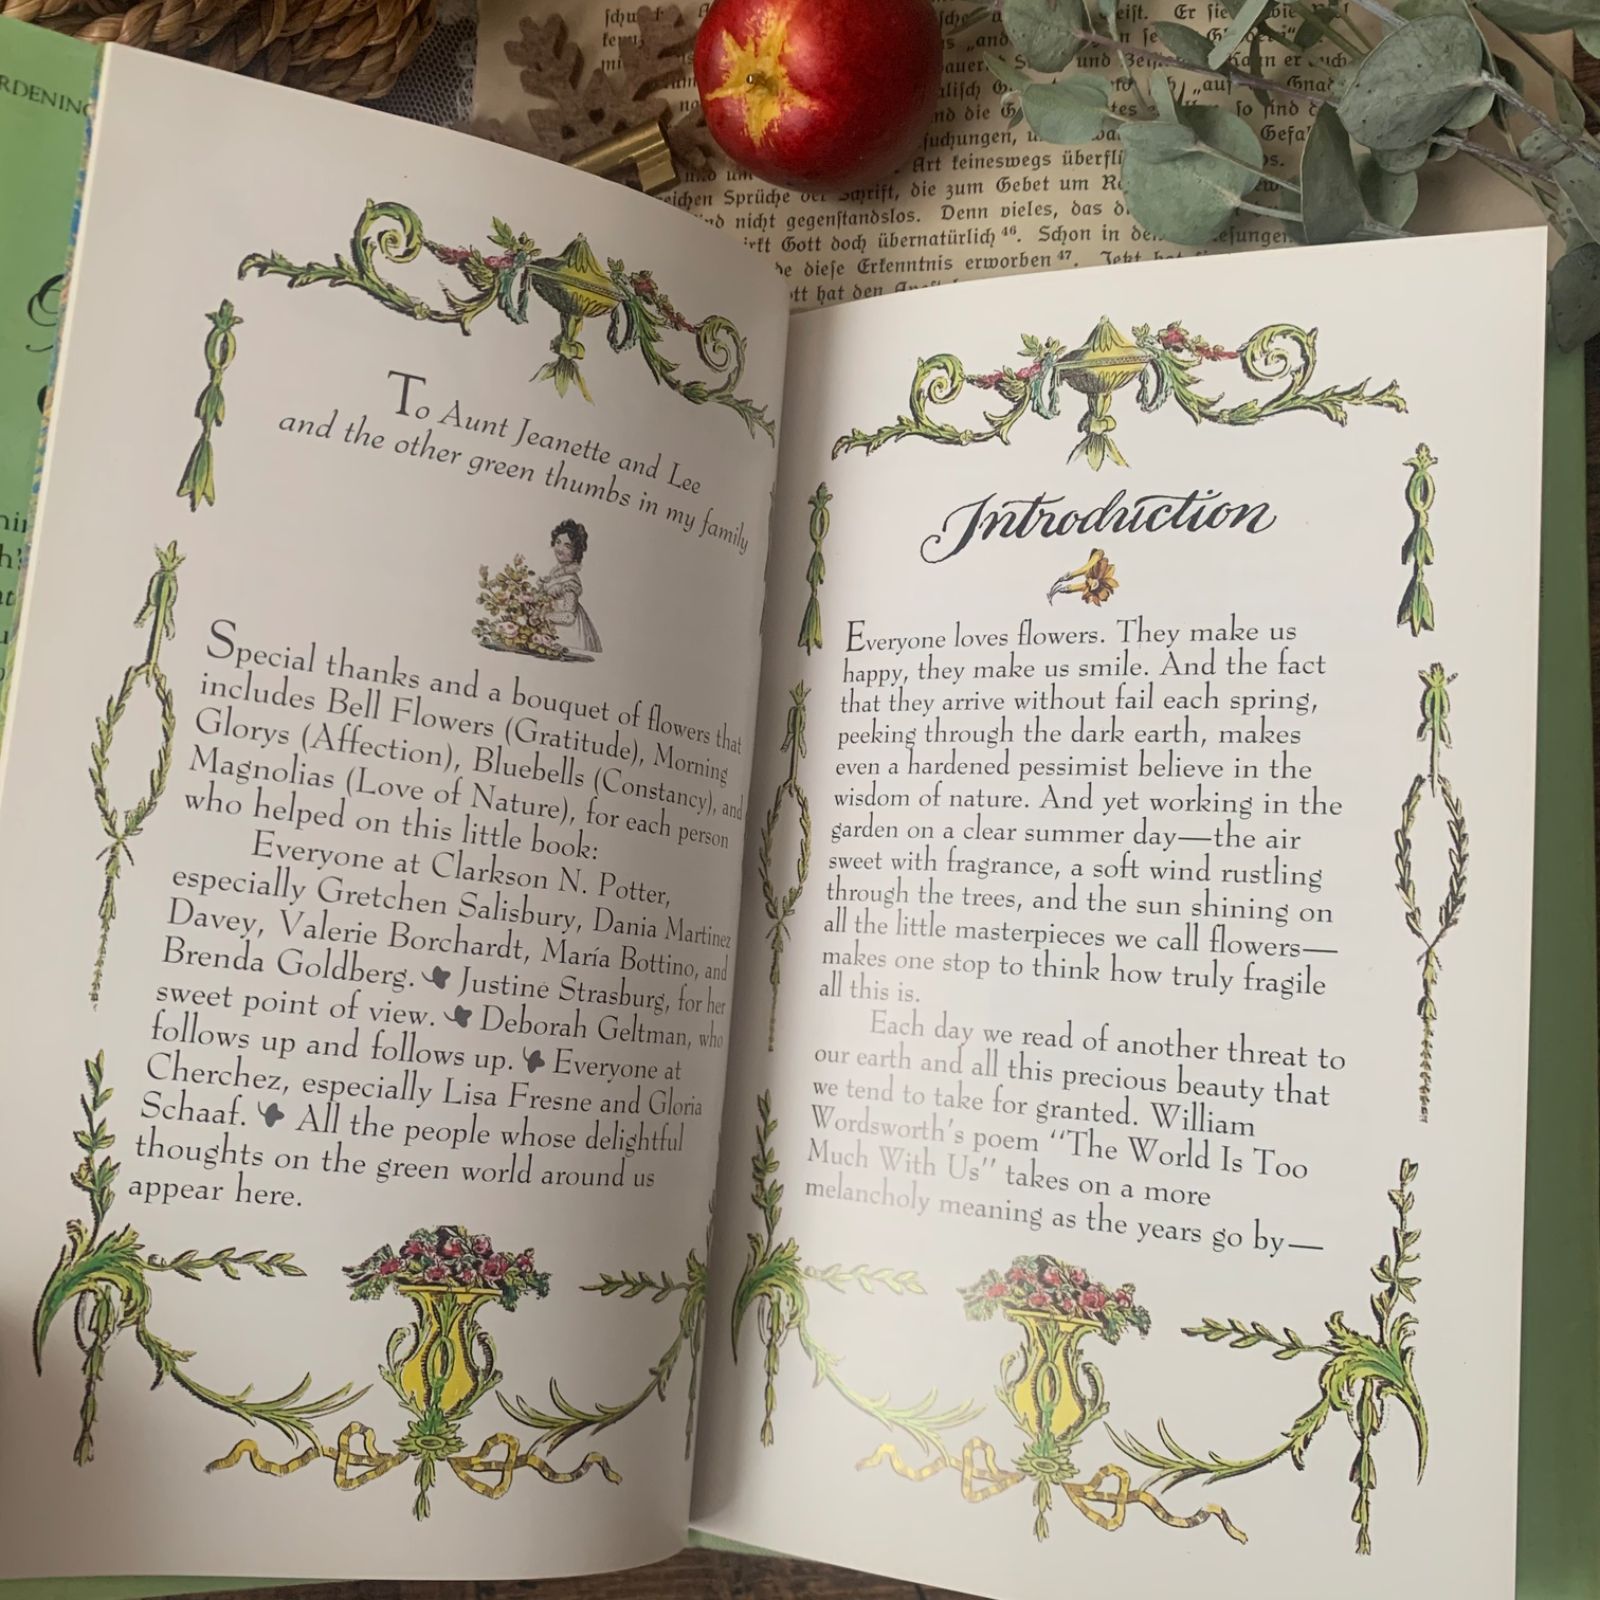 RDENING
To Aunt Jeanette and Lee
and the other green thumbs in my family
Special thanks and a bouquet of flowers that
includes Bell Flowers (Gratitude), Morning
Glorys (Affection), Bluebells (Constancy), and
Magnolias (Love of Nature), for each person
who helped on this little book:
Everyone at Clarkson N. Potter,
especially Gretchen Salisbury, Dania Martinez
Davey, Valerie Borchardt, María Bottino, and
Brenda Goldberg. Justine Strasburg, for her
sweet point of view. Deborah Geltman, who
follows up and follows up. Everyone at
Cherchez, especially Lisa Fresne and Gloria
Schaaf. All the people whose delightful
thoughts on the green world around us
appear here.
Introduction
Everyone loves flowers. They make us
happy, they make us smile. And the fact
that they arrive without fail each spring,
peeking through the dark earth, makes
even a hardened pessimist believe in the
wisdom of nature. And yet working in the
garden on a clear summer day—the air
sweet with fragrance, a soft wind rustling
through the trees, and the sun shining on
all the little masterpieces we call flowers—
makes one stop to think how truly fragile
all this is.
Each day we read of another threat to
our earth and all this precious beauty that
we tend to take for granted. William
Wordsworth's poem "The World Is Too
Much With Us" takes on a more
melancholy meaning as the years go by—
Art keineswegs
Sprüche der Schrift, die zum Gebet um
nicht gegenstandslos. Denn vieles, das
Gott doch übernatürlich 46. Schon in
diese Erkenntnis erworben 47. Jetzt hat
hat den